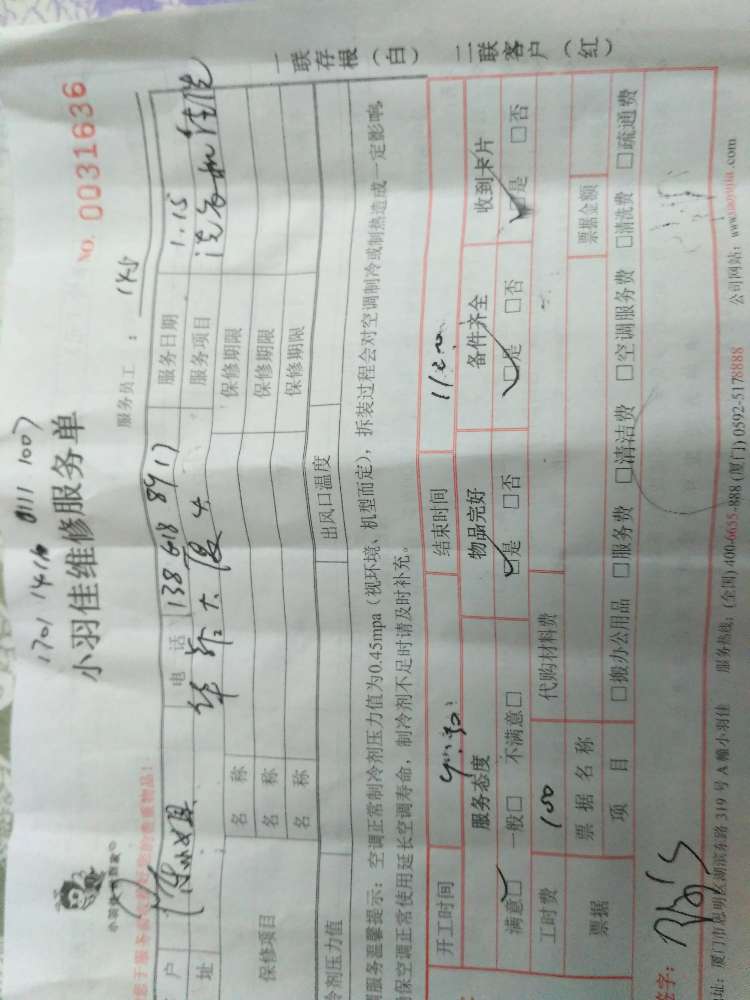 1701 1416 0111 1007
小羽佳维修服务单
NO. 0031636
服务员工：
户 电话 138 618 8917 服务日期 1.15
址 华 大厦 服务项目 洗衣机清洗
保修项目 名称 保修期限
名称 保修期限
名称 保修期限
冷剂压力值 出风口温度
调服务温馨提示：空调正常制冷剂压力值为0.45mpa（视环境、机型而定），拆装过程会对空调制冷或制热造成一定影响，
确保空调正常使用延长空调寿命，制冷剂不足时请及时补充。
开工时间 结束时间
服务态度 物品完好 备件齐全 收到卡片
满意□ 一般□ 不满意□ □是 □否 □是 □否 □是 □否
工时费 100 代购材料费
票据 票据名称 票据金额
项目 □搬办公用品 □服务费 □清洁费 □空调服务费 □清洗费 □疏通费
签字：
址：厦门市思明区湖滨东路319号A幢小羽佳 服务热线：(全国) 400-6655-888 (厦门) 0592-5178888 公司网站：www.xiaoyujia.com
一联存根（白）
二联客户（红）